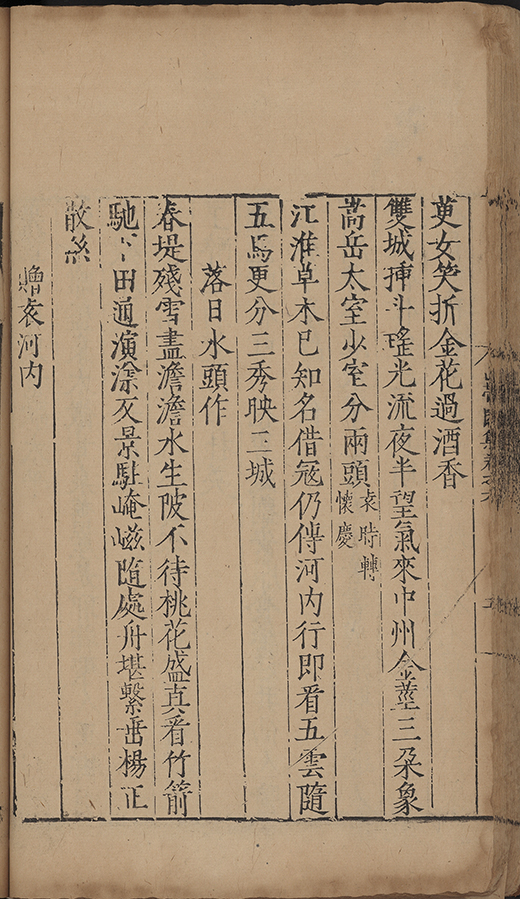 萸女笑折金花過酒香
雙城揷斗瑤光流夜半望氣來中州金莖三朶象
嵩岳太室少室分兩頭袁時轉懷慶
江淮草木已知名借冦仍傳河内行即看五雲隨
五馬更分三秀映三城
落日水頭作
春堤殘雪盡澹澹水生陂不待桃花盛真看竹箭
馳下田通演漾反景駐崦嵫隨處舟堪繫垂楊正
散絲
贈袁河内